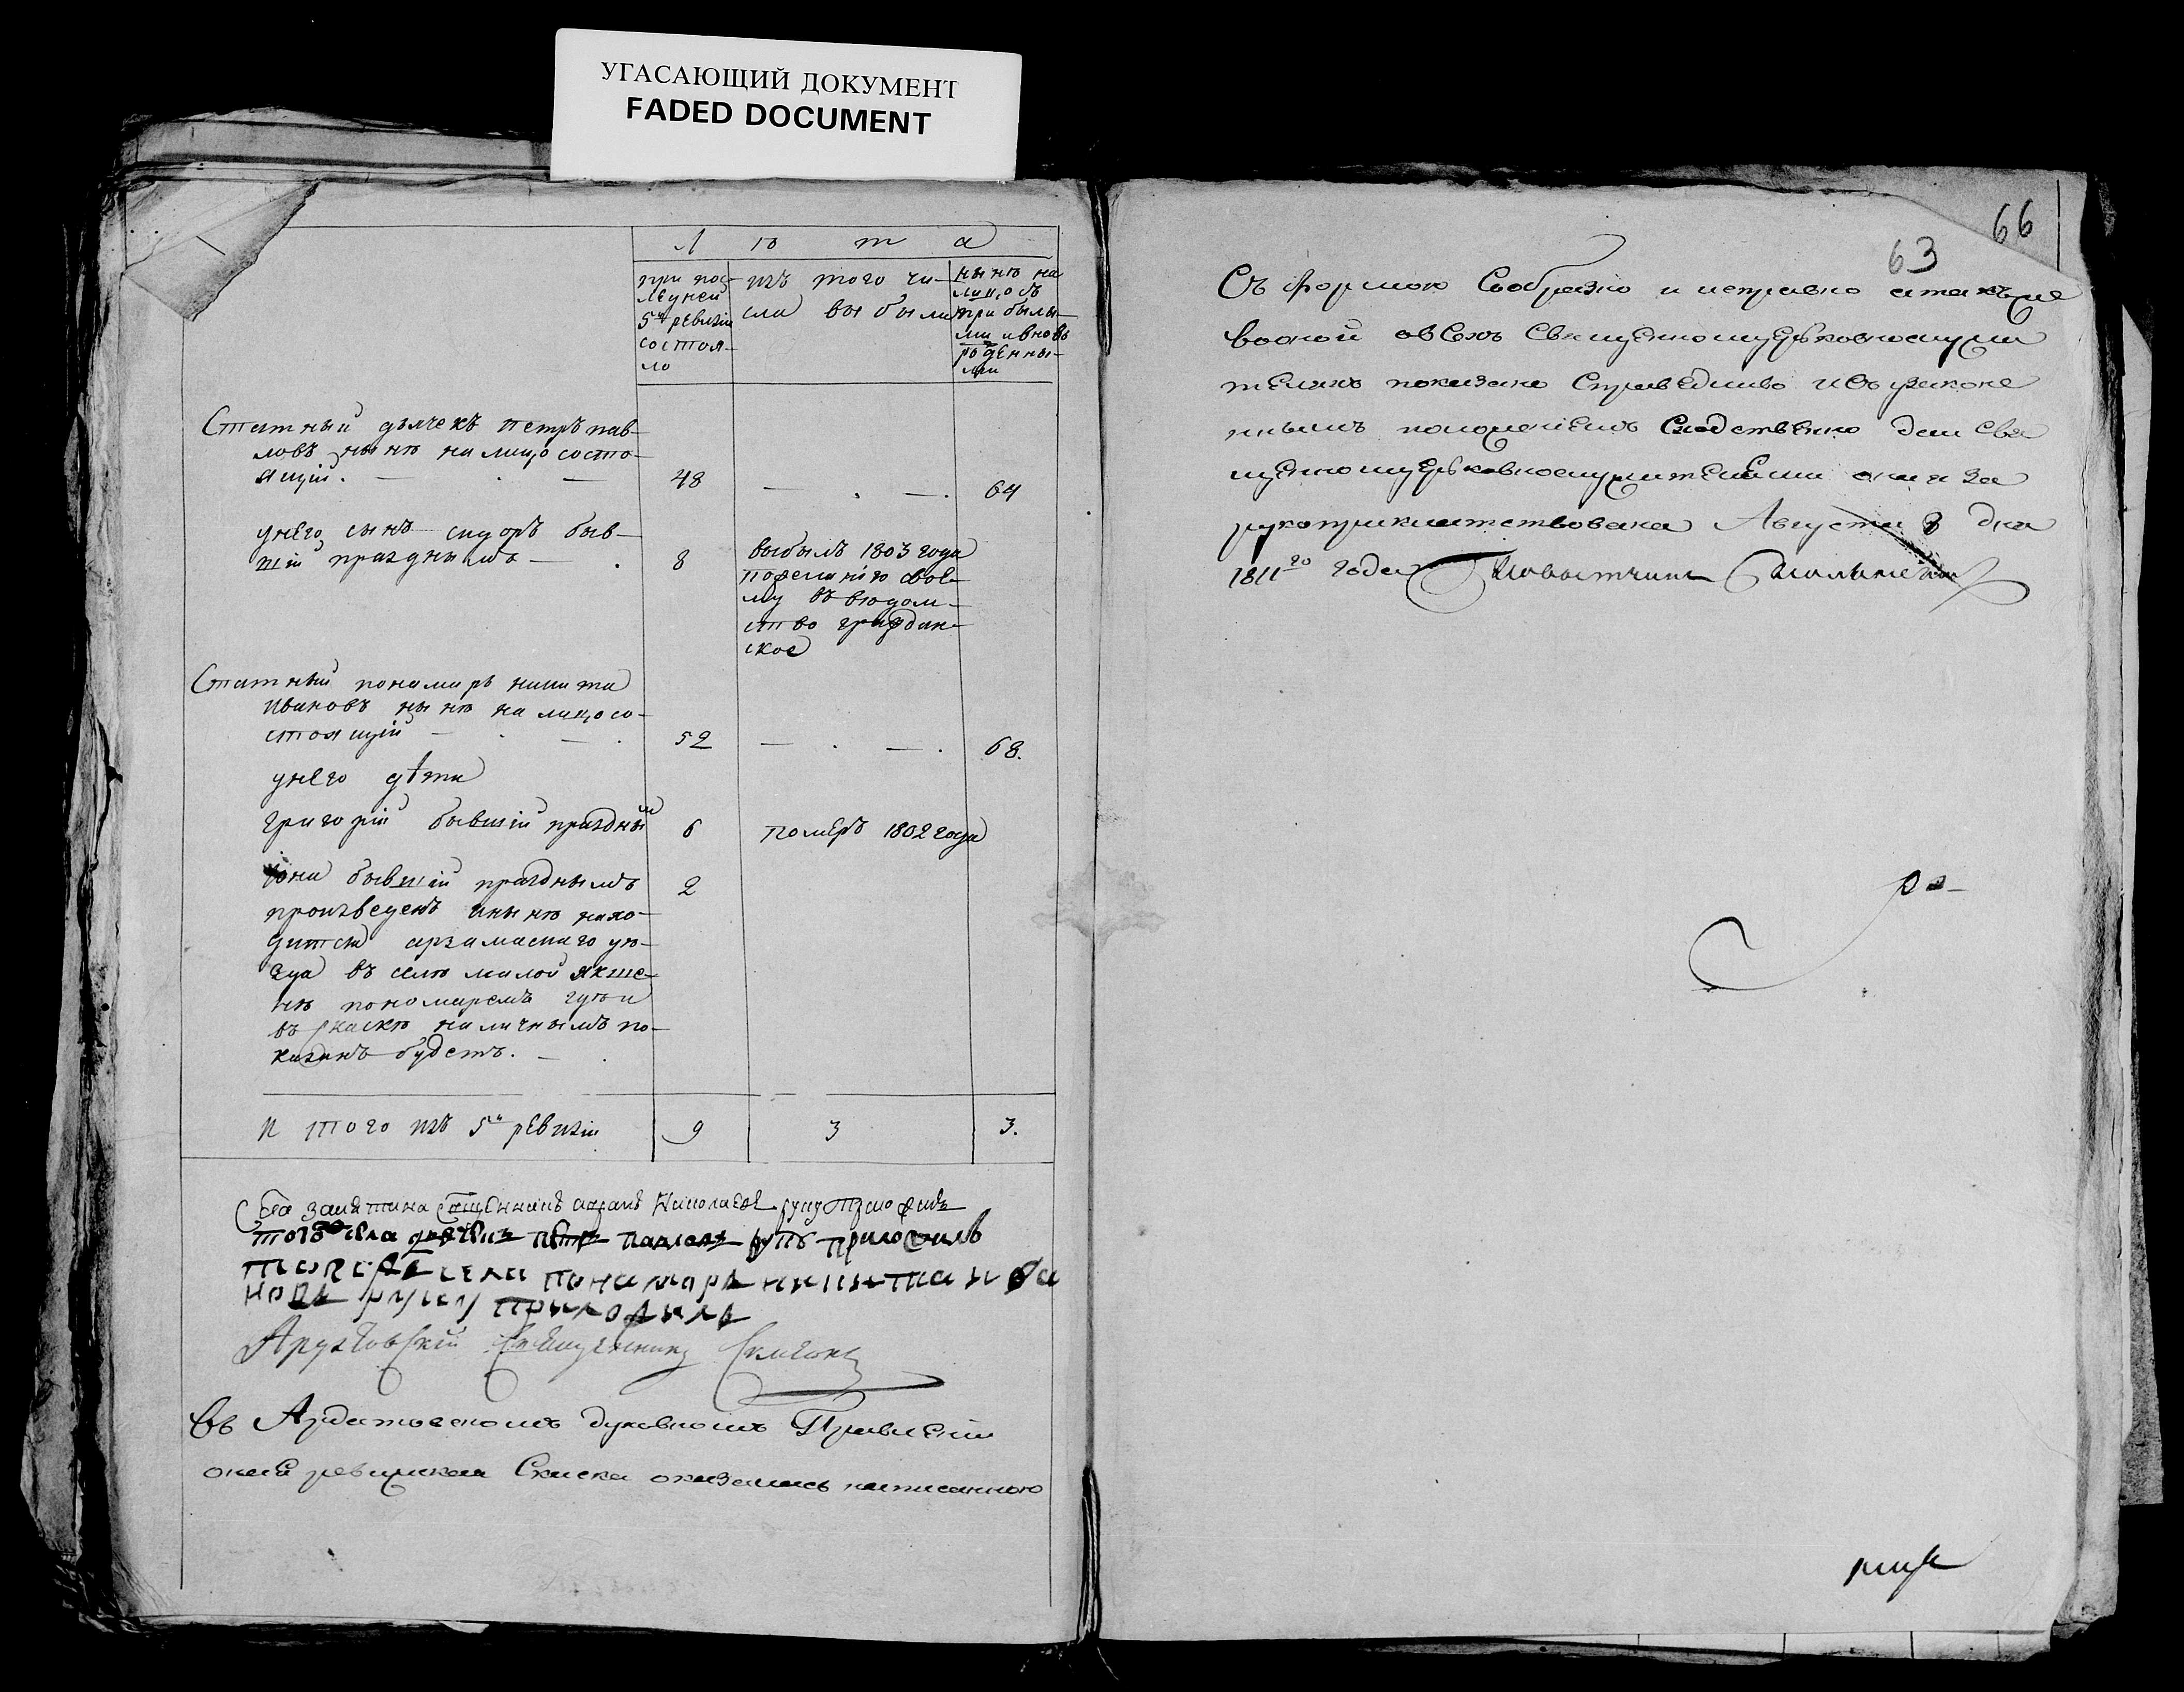 УГАСАЮЩИЙ ДОКУМЕНТ
FADED DOCUMENT
Лѣта
при пос-
лѣдней
5й ревизіи
состоя-
ло
изъ того чи-
сла выбыли
нынѣ на
лицо съ
прибылы-
ми и вновь
рожденны-
ми
Статный дьячекъ петръ пав-
ловъ нынѣ на лицо состо-
ящій. 48 64
у него сынъ сидоръ быв-
шій празднымъ 8
выбылъ 1803 года
по желанію свое-
му въ вѣдом-
ство граждан-
ское
Статный пономарь никита
Ивановъ нынѣ на лицо со-
стоящій 52 68.
у него дѣти
григорій бывшій праздный 6 померъ 1802 года
бывшій празднымъ 2
произведенъ и нынѣ нахо-
дится арзамаскаго уѣ-
зда въ селѣ малой якше-
нѣ пономаремъ гдѣ и
въ скаскѣ наличнымъ по-
казанъ будетъ.
Итого изъ 5й ревизіи 9 3 3.
Села замятина Священникъ Николаевъ руку приложилъ
тогожъ села петръ павловъ приложилъ
села пономарь никита ива
новъ руку приложилъ
Священникъ
Въ Ардатовскомъ духовномъ Правленіи
оная ревижская Скаска оказалась написанною
66
63
Съ формою Сообразно и исправно а также
о всехъ Священноцерковнослужи
теляхъ показано Справедливо и съ узаконе
ннымъ положеніемъ Сходственно для Свя
щенноцерковнослужителями она и за
рукоприкладствована Августа 8 дня
1811го года